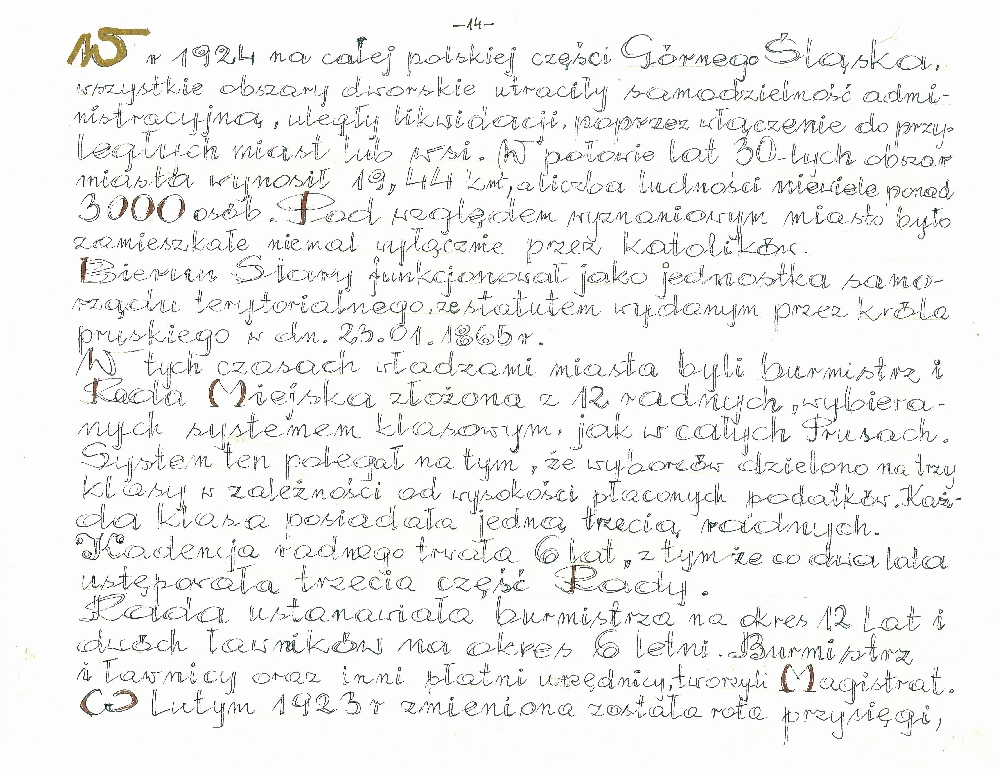 -14-
W r 1924 na całej polskiej części Górnego Śląska,
wszystkie obszary dworskie utraciły samodzielność admi-
nistracyjną, uległy likwidacji, poprzez włączenie do przy-
ległych miast lub wsi. W połowie lat 30-tych obszar
miasta wynosił 19,44 km², a liczba ludności niewiele ponad
3000 osób. Pod względem wyznaniowym miasto było
zamieszkałe niemal wyłącznie przez katolików.
Bieruń Stary funkcjonował jako jednostka samo-
rządu terytorialnego, ze statutem wydanym przez króla
pruskiego w dn. 23.01.1865 r.
W tych czasach władzami miasta byli burmistrz i
Rada Miejska złożona z 12 radnych, wybiera-
nych systemem klasowym, jak w całych Prusach.
System ten polegał na tym, że wyborców dzielono na trzy
klasy w zależności od wysokości płaconych podatków. Każ-
da klasa posiadała jedną trzecią radnych.
Kadencja radnego trwała 6 lat, z tym że co dwa lata
ustępowała trzecia część Rady.
Rada ustanawiała burmistrza na okres 12 lat i
dwóch ławników na okres 6 letni. Burmistrz
i ławnicy oraz inni płatni urzędnicy, tworzyli Magistrat.
W lutym 1923 r zmieniona została rota przysięgi,